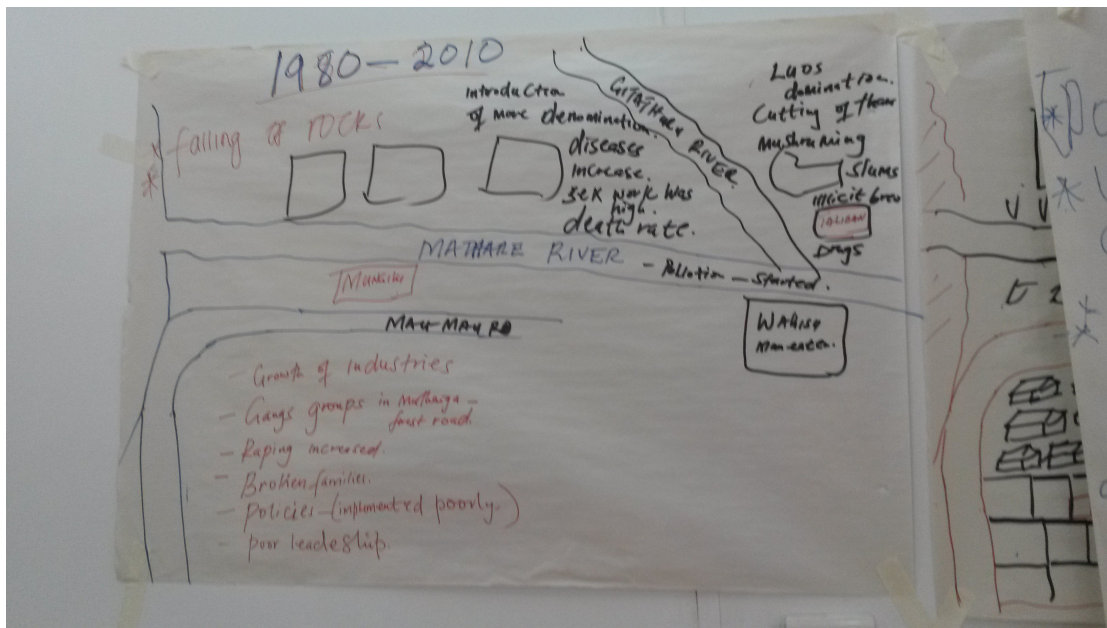 1980 - 2010
* falling of rocks
Introduction
of more denomination.
diseases
increase.
sex work was
high.
death rate.
GITATHURU RIVER
Luos
domination.
Cutting of
Mushruming
Slums
illicit brew
TALIBAN
Drugs
MATHARE RIVER
- Pollution - Started.
Mungiki
MAU-MAU RD
- Growth of industries
- Gangs groups in Muthaiga -
road.
- Raping increased.
- Broken families.
- Policies - (implemented poorly.)
- poor leadeship.